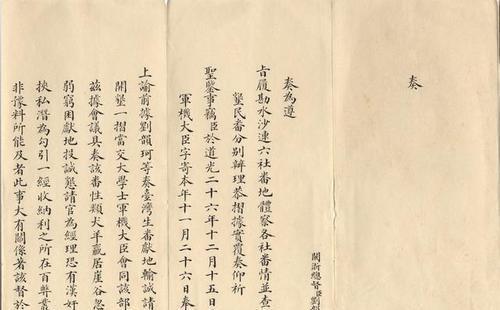 奏
閩浙總督臣劉
奏為遵
旨履勘水沙連六社番地體察各社番情並查
墾民番分別辦理恭摺據實覆奏仰祈
聖鑒事竊臣於道光二十六年十二月十五日
軍機大臣字寄本年十一月二十六日奉
上諭前據劉韻珂等奏臺灣生番獻地輸誠請
開墾一摺當交大學士軍機大臣會同該部
茲據會議具奏該番性類犬羊羸居崖谷忽
弱窮困獻地投誠懇請官為經理恐有漢奸
挾私潛為勾引一經收納利之所在百弊叢
非豫料所能及者此事大有關係著該督於